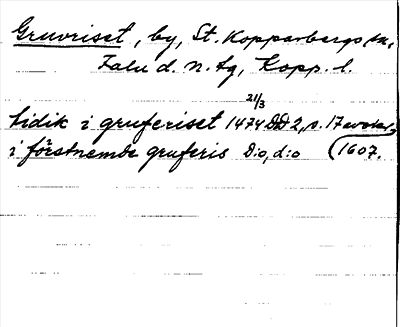 Gruvriset, by, St. Kopparbergs sn,
Falu d. n. tg, Kopp. l.
21/3
lidik i gruferiset 1474 DD 2, s. 17
i förstnemde gruferis D:o, d:o (1607.